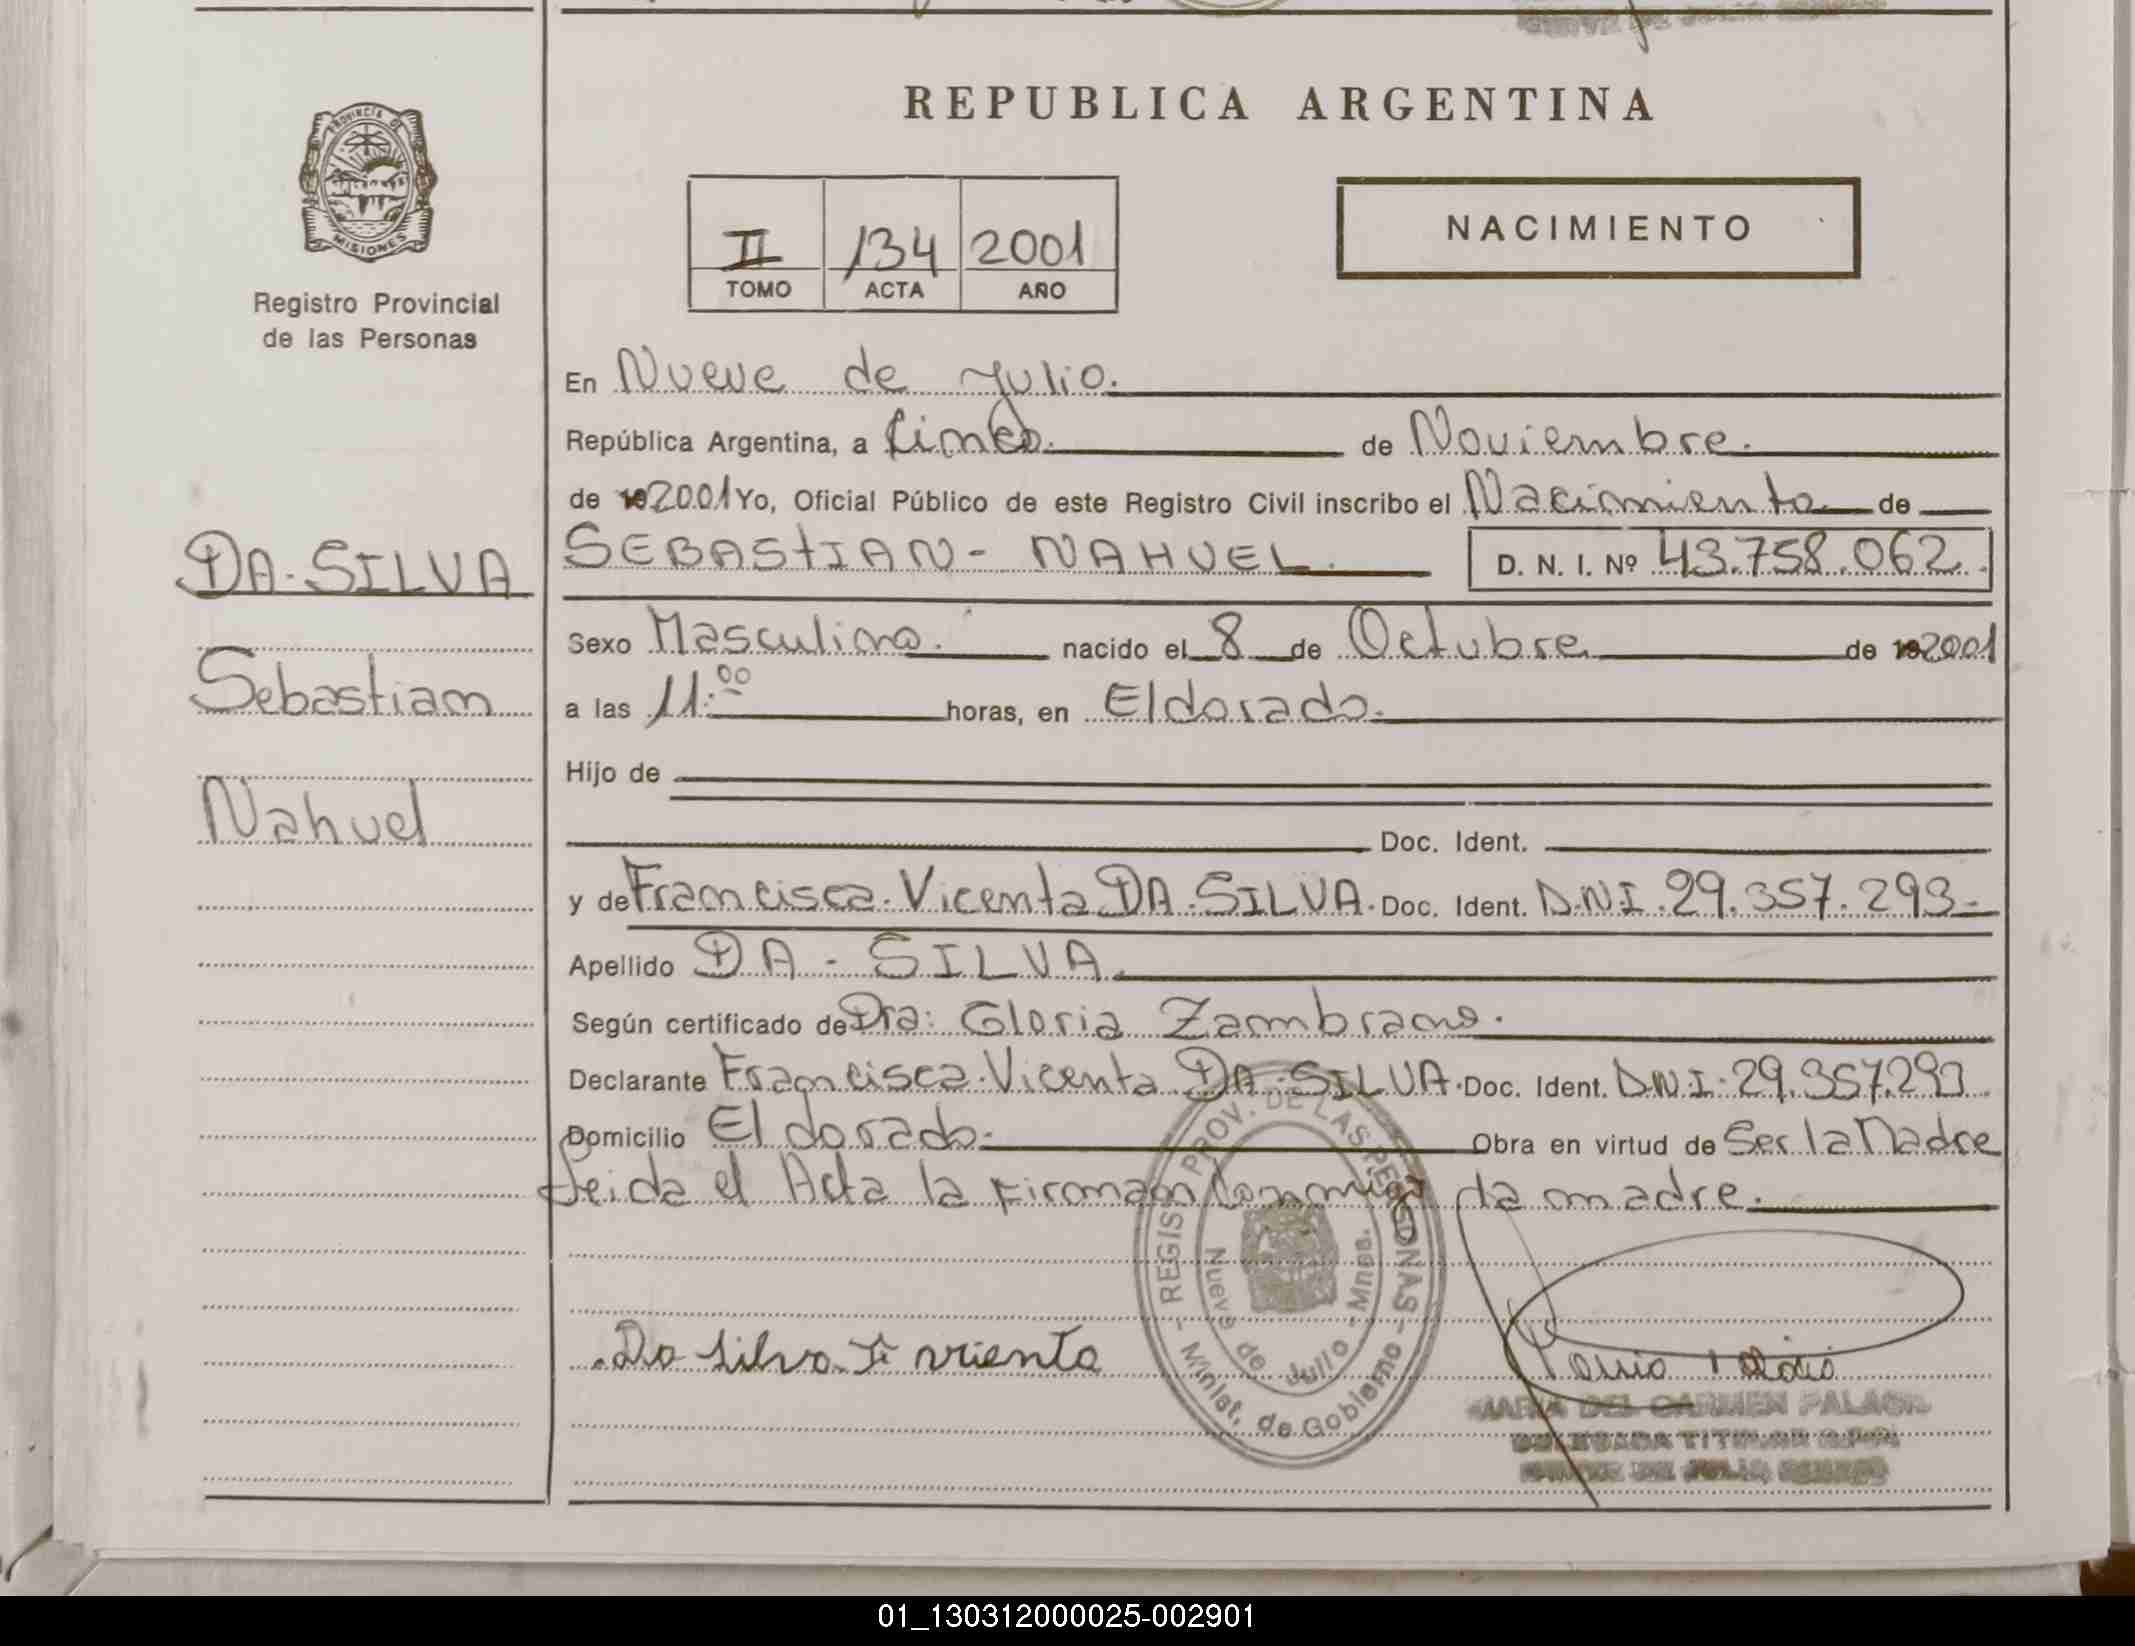 REPUBLICA ARGENTINA
PROVINCIA DE
MISIONES
Registro Provincial
de las Personas
II 134 2001
TOMO ACTA AÑO
NACIMIENTO
En Nueve de Julio.
República Argentina, a Cinco. de Noviembre.
de 192001 Yo, Oficial Público de este Registro Civil inscribo el Nacimiento de
DA-SILVA
Sebastian
Nahuel
SEBASTIAN - NAHUEL. D. N. I. Nº 43.758.062.
Sexo Masculino. nacido el 8 de Octubre de 192001
a las 11:00 horas, en Eldorado.
Hijo de
Doc. Ident.
y de Francisca. Vicenta DA-SILVA. Doc. Ident. D.N.I. 29.357.293-
Apellido DA - SILVA.
Según certificado de Dra: Gloria Zambrano.
Declarante Francisca. Vicenta DA-SILVA. Doc. Ident. D.N.I. 29.357.293
Domicilio Eldorado. Obra en virtud de Ser la Madre
Leida el Acta la Firman Conmigo la madre.
REGIST. PROV. DE LAS PERSONAS
Nueve de Julio - Mnes.
- Minist. de Gobierno -
Da Silva
MARIA DEL CARMEN PALACIO
DELEGADA TITULAR R.P.P.
NUEVE DE JULIO
01_130312000025-002901